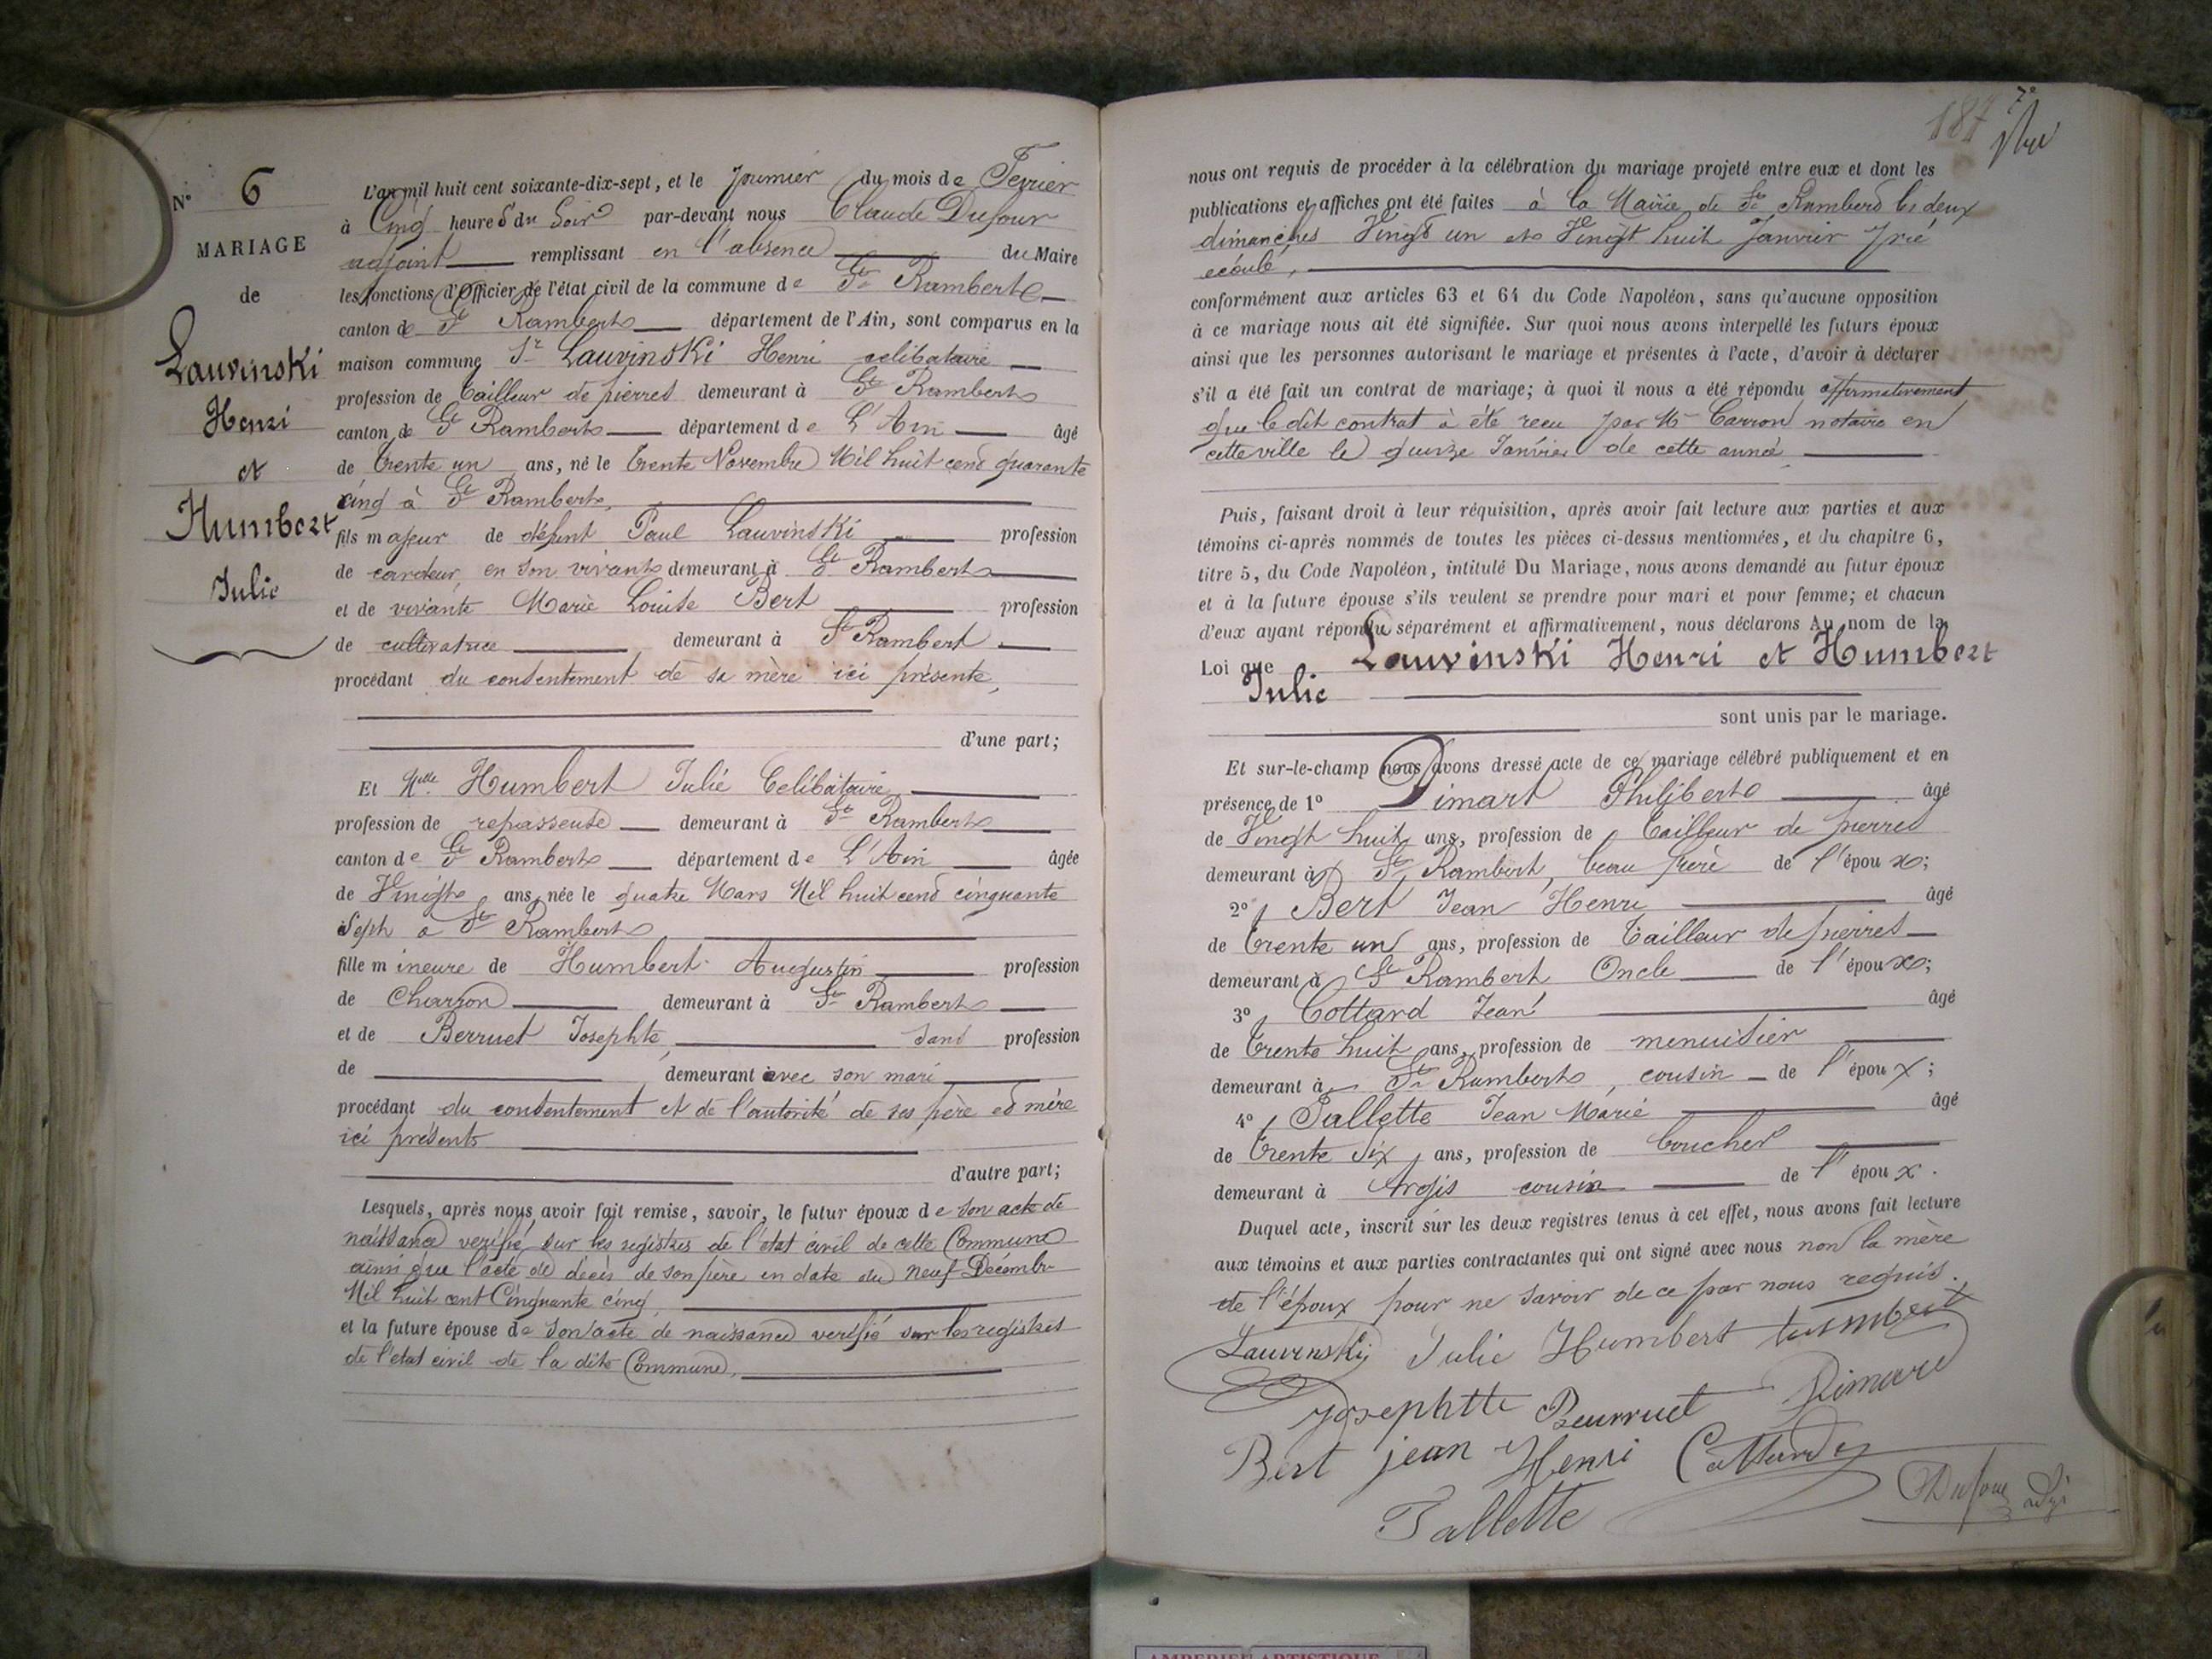 N° 6
MARIAGE
de
Lauvinski
Henri
et
Humbert
Julie
L'an mil huit cent soixante-dix-sept, et le premier du mois de Fevrier
à Cinq heures du Soir par-devant nous Claude Dufour
adjoint remplissant en l'absence du Maire
les fonctions d'Officier de l'état civil de la commune de St Rambert
canton de St Rambert département de l'Ain, sont comparus en la
maison commune Sr Lauvinski Henri celibataire
profession de tailleur de pierres demeurant à St Rambert
canton de St Rambert département de L'Ain âgé
de trente un ans, né le trente Novembre Mil huit cent quarente
cinq à St Rambert,
fils majeur de défunt Paul Lauvinski profession
de cardeur, en son vivant demeurant à St Rambert
et de vivante Marie Louise Bert profession
de cultivatrice demeurant à St Rambert
procédant du consentement de sa mère ici présente,
d'une part;
Et Mlle Humbert Julie Celibataire
profession de repasseuse demeurant à St Rambert
canton de St Rambert département de L'Ain âgée
de Vingt ans, née le quatre Mars Mil huit cent cinquante
Sept à St Rambert
fille mineure de Humbert Augustin profession
de Charron demeurant à St Rambert
et de Berruet Josephte, sans profession
de demeurant avec son mari
procédant du consentement et de l'autorité de ses père et mère
ici présents
d'autre part;
Lesquels, après nous avoir fait remise, savoir, le futur époux de son acte de
naissance verifié sur les registres de l'état civil de cette Commune
ainsi que l'acte de décès de son père en date du neuf Décembre
Mil huit cent Cinquante cinq,
et la future épouse de Son acte de naissance verifié sur les registres
de l'état civil de la dite Commune,
187 7e
nous ont requis de procéder à la célébration du mariage projeté entre eux et dont les
publications et affiches ont été faites à la Mairie de St Rambert les deux
dimanches Vingt un et Vingt huit Janvier pré
ecoulé,
conformément aux articles 63 et 64 du Code Napoléon, sans qu'aucune opposition
à ce mariage nous ait été signifiée. Sur quoi nous avons interpellé les futurs époux
ainsi que les personnes autorisant le mariage et présentes à l'acte, d'avoir à déclarer
s'il a été fait un contrat de mariage; à quoi il nous a été répondu affirmativement
que le dit contrat à été recu par Me Carron notaire en
cette ville le quinze Janvier de cette année
Puis, faisant droit à leur réquisition, après avoir fait lecture aux parties et aux
témoins ci-après nommés de toutes les pièces ci-dessus mentionnées, et du chapitre 6,
titre 5, du Code Napoléon, intitulé Du Mariage, nous avons demandé au futur époux
et à la future épouse s'ils veulent se prendre pour mari et pour femme; et chacun
d'eux ayant répondu séparément et affirmativement, nous déclarons Au nom de la
Loi que Lauvinski Henri et Humbert
Julie
sont unis par le mariage.
Et sur-le-champ nous avons dressé acte de ce mariage célébré publiquement et en
présence de 1° Dimart Philibert âgé
de Vingt huit ans, profession de tailleur de pierres
demeurant à St Rambert, beau frere de l'époux;
2° Bert Jean Henri âgé
de trente un ans, profession de tailleur de pierres
demeurant à St Rambert Oncle de l'époux;
3° Cottard Jean âgé
de trente huit ans, profession de menuisier
demeurant à St Rambert, cousin de l'époux;
4° Pallette Jean Marie âgé
de trente Six ans, profession de boucher
demeurant à Argis cousin de l'époux.
Duquel acte, inscrit sur les deux registres tenus à cet effet, nous avons fait lecture
aux témoins et aux parties contractantes qui ont signé avec nous non la mère
de l'époux pour ne savoir de ce par nous requis.
Lauvinski Julie Humbert humbert
Josephtte Beurruet Dimard
Bert jean Henri Cottard
Pallette Dufour adj
AMBERIEU ARTISTIQUE